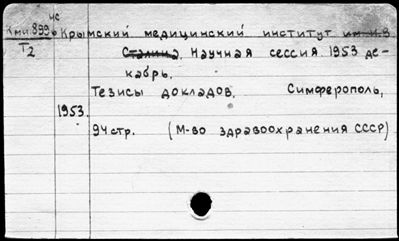 ис
Кми899б Крымский медицинский институт им. И.В.
Т2 Сталина. Научная сессия. 1953 де-
кабрь.
Тезисы докладов. Симферополь,
1953.
94стр. (М-во здравоохранения СССР)